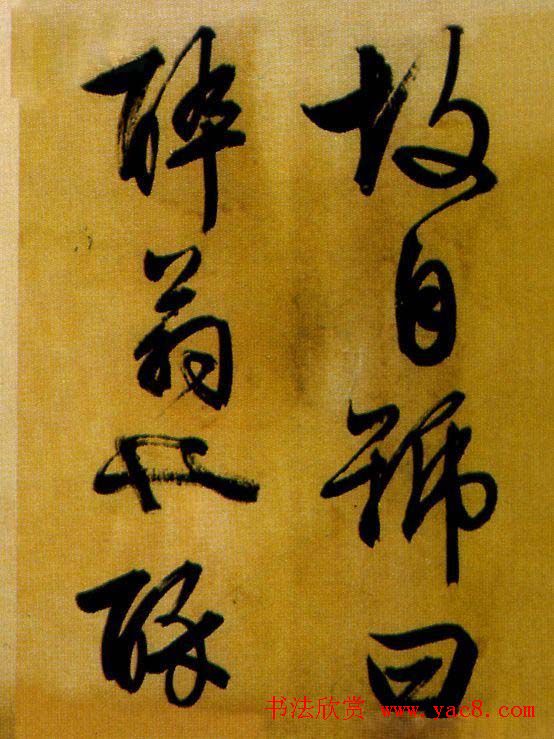 故自號曰
醉翁也醉
书法欣赏 www.yac8.com